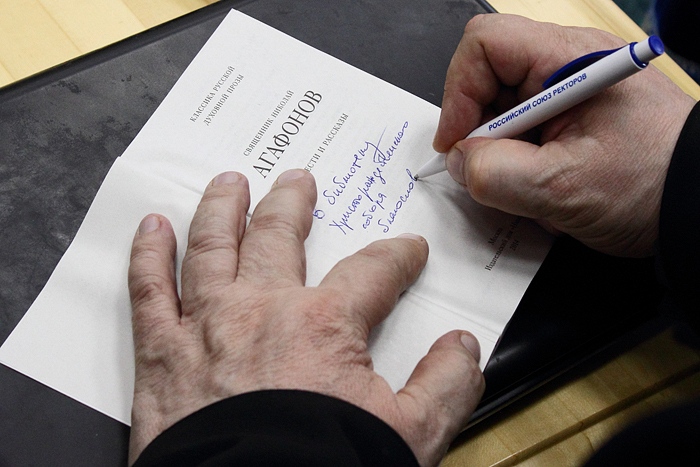 КЛАССИКА РУССКОЙ
ДУХОВНОЙ ПРОЗЫ
СВЯЩЕННИК НИКОЛАЙ
АГАФОНОВ
ВЕСТИ И РАССКАЗЫ
В библиотеку
Христорождественского
собора
благослов
РОССИЙСКИЙ СОЮЗ РЕКТОРОВ